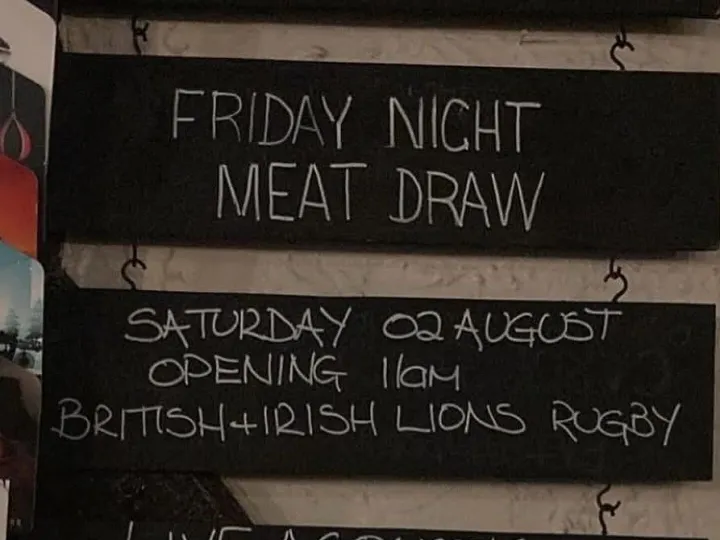 FRIDAY NIGHT
MEAT DRAW
SATURDAY 02 AUGUST
OPENING 11am
BRITISH + IRISH LIONS RUGBY
LIVE